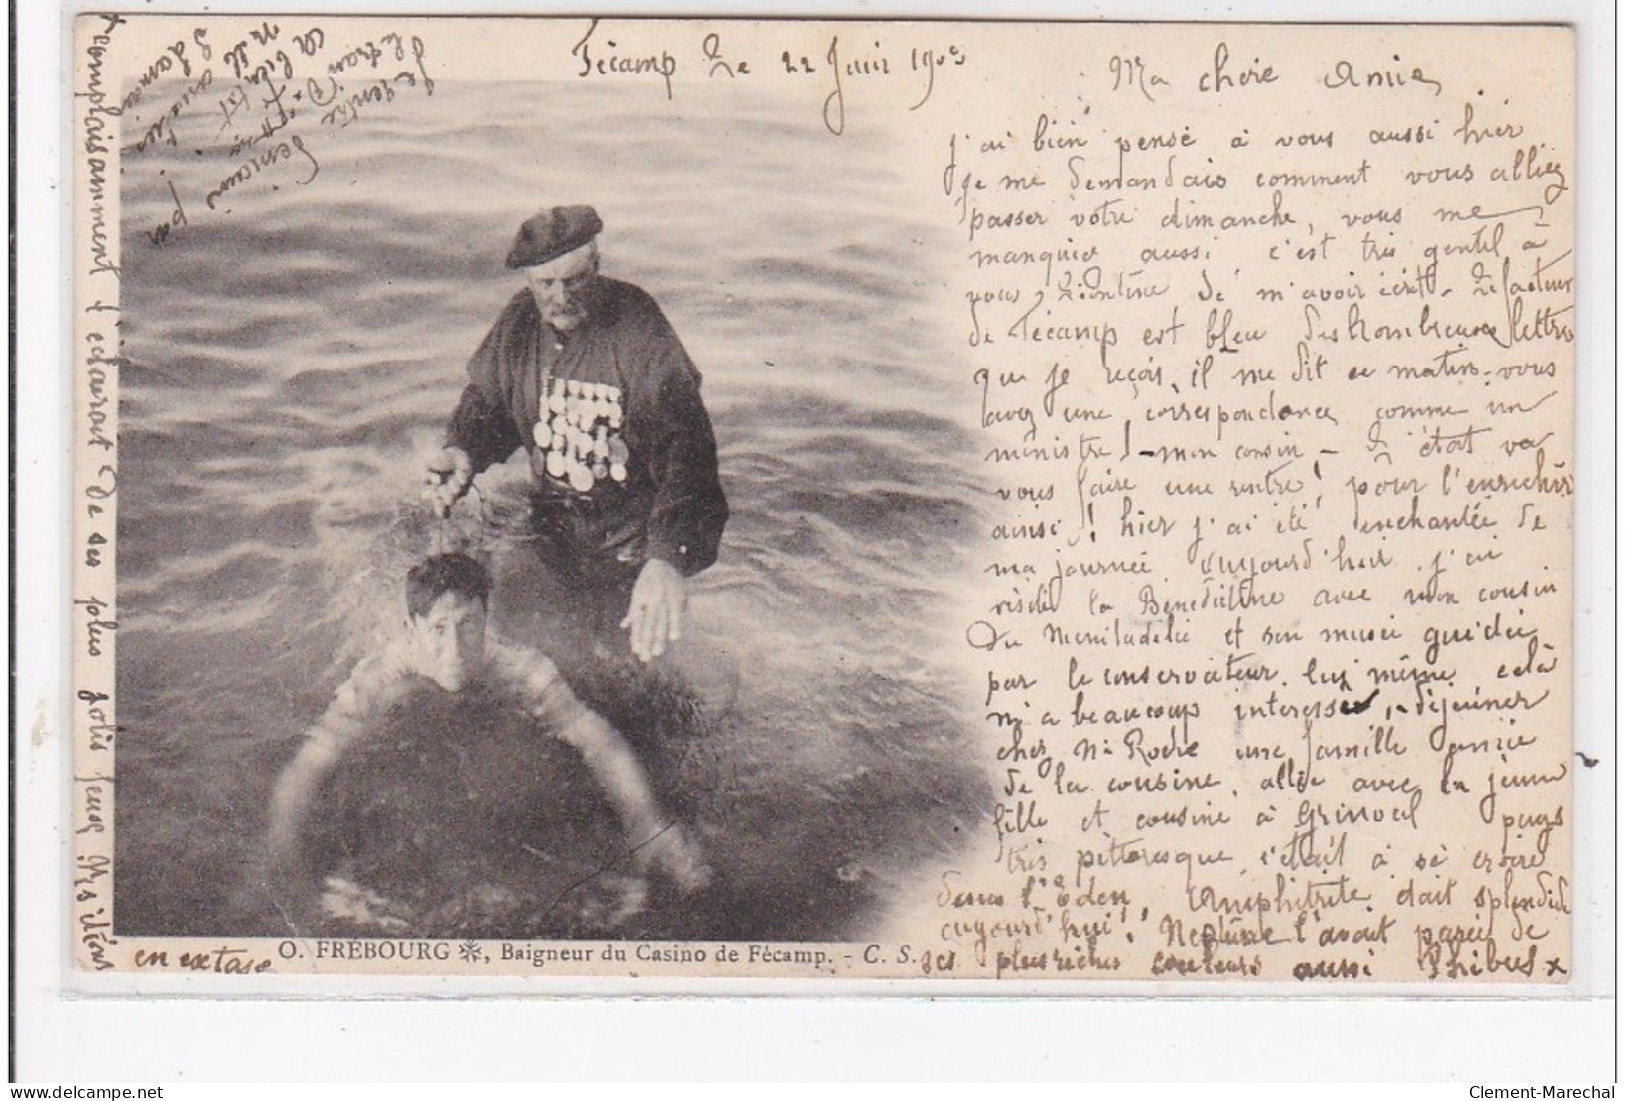 Fécamp Le 22 Juin 190
Ma chère Amie
j'ai bien pensé à vous aussi hier
je me demandais comment vous alliez
passer votre dimanche, vous me
manquiez aussi, c'est très gentil à
vous, Léontine de m'avoir écrit. Le facteur
de Fécamp est bleu des nombreuses lettres
que je reçois, il me dit ce matin, vous
avez une correspondance comme un
ministre ! - mon cousin - L'état va
vous faire une rente ! pour l'enrichir
ainsi ! hier j'ai été enchantée de
ma journée aujourd'hui. j'ai
visité la Bénédictine avec mon cousin
du et son musée guidée
par le conservateur lui même celà
m'a beaucoup intéressée, déjeuner
chez Mr Roche une famille amie
de la cousine, allée avec la jeune
fille et cousine à Grinval pays
très pittoresque c'était à se croire
dans l'Eden, Amphitrite était splendide
aujourd'hui ! Neptune l'avait parée de
ses plus riches couleurs aussi Phébus x
x complaisamment l'éclairait de ses plus jolis feux Nrs étions
en extase
Je rentre
A bientôt
Mlle
par
O. FRÉBOURG ❋, Baigneur du Casino de Fécamp. - C. S.
delcampe.net
Clement-Marechal